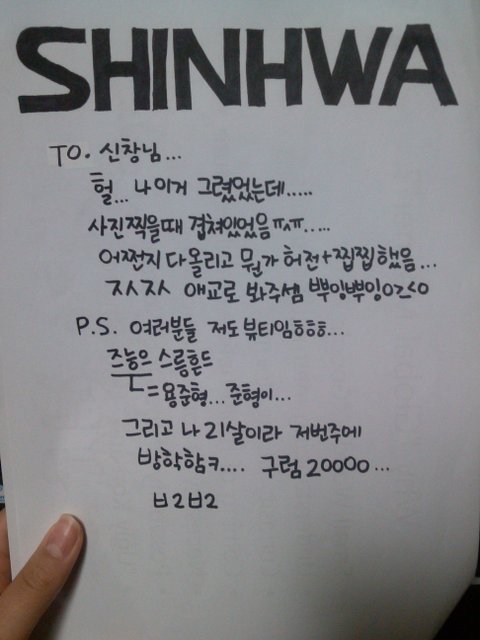 SHINHWA
TO. 신창님...
헐... 나 이거 그렸었는데.....
사진찍을때 겹쳐있었음ㅠㅅㅠ.....
어쩐지 다올리고 뭔가 허전+찝찝했음...
ㅈㅅㅈㅅ 애교로 봐주셈 뿌잉뿌잉0≥≤0
P.S. 여러분들 저도뷰티임ㅎㅎㅎ...
즈눙은 스릉흔드
=용준형...준형이...
그리고 나 21살이라 저번주에
방학함ㅋ.... 구럼 20000...
ㅂ2ㅂ2